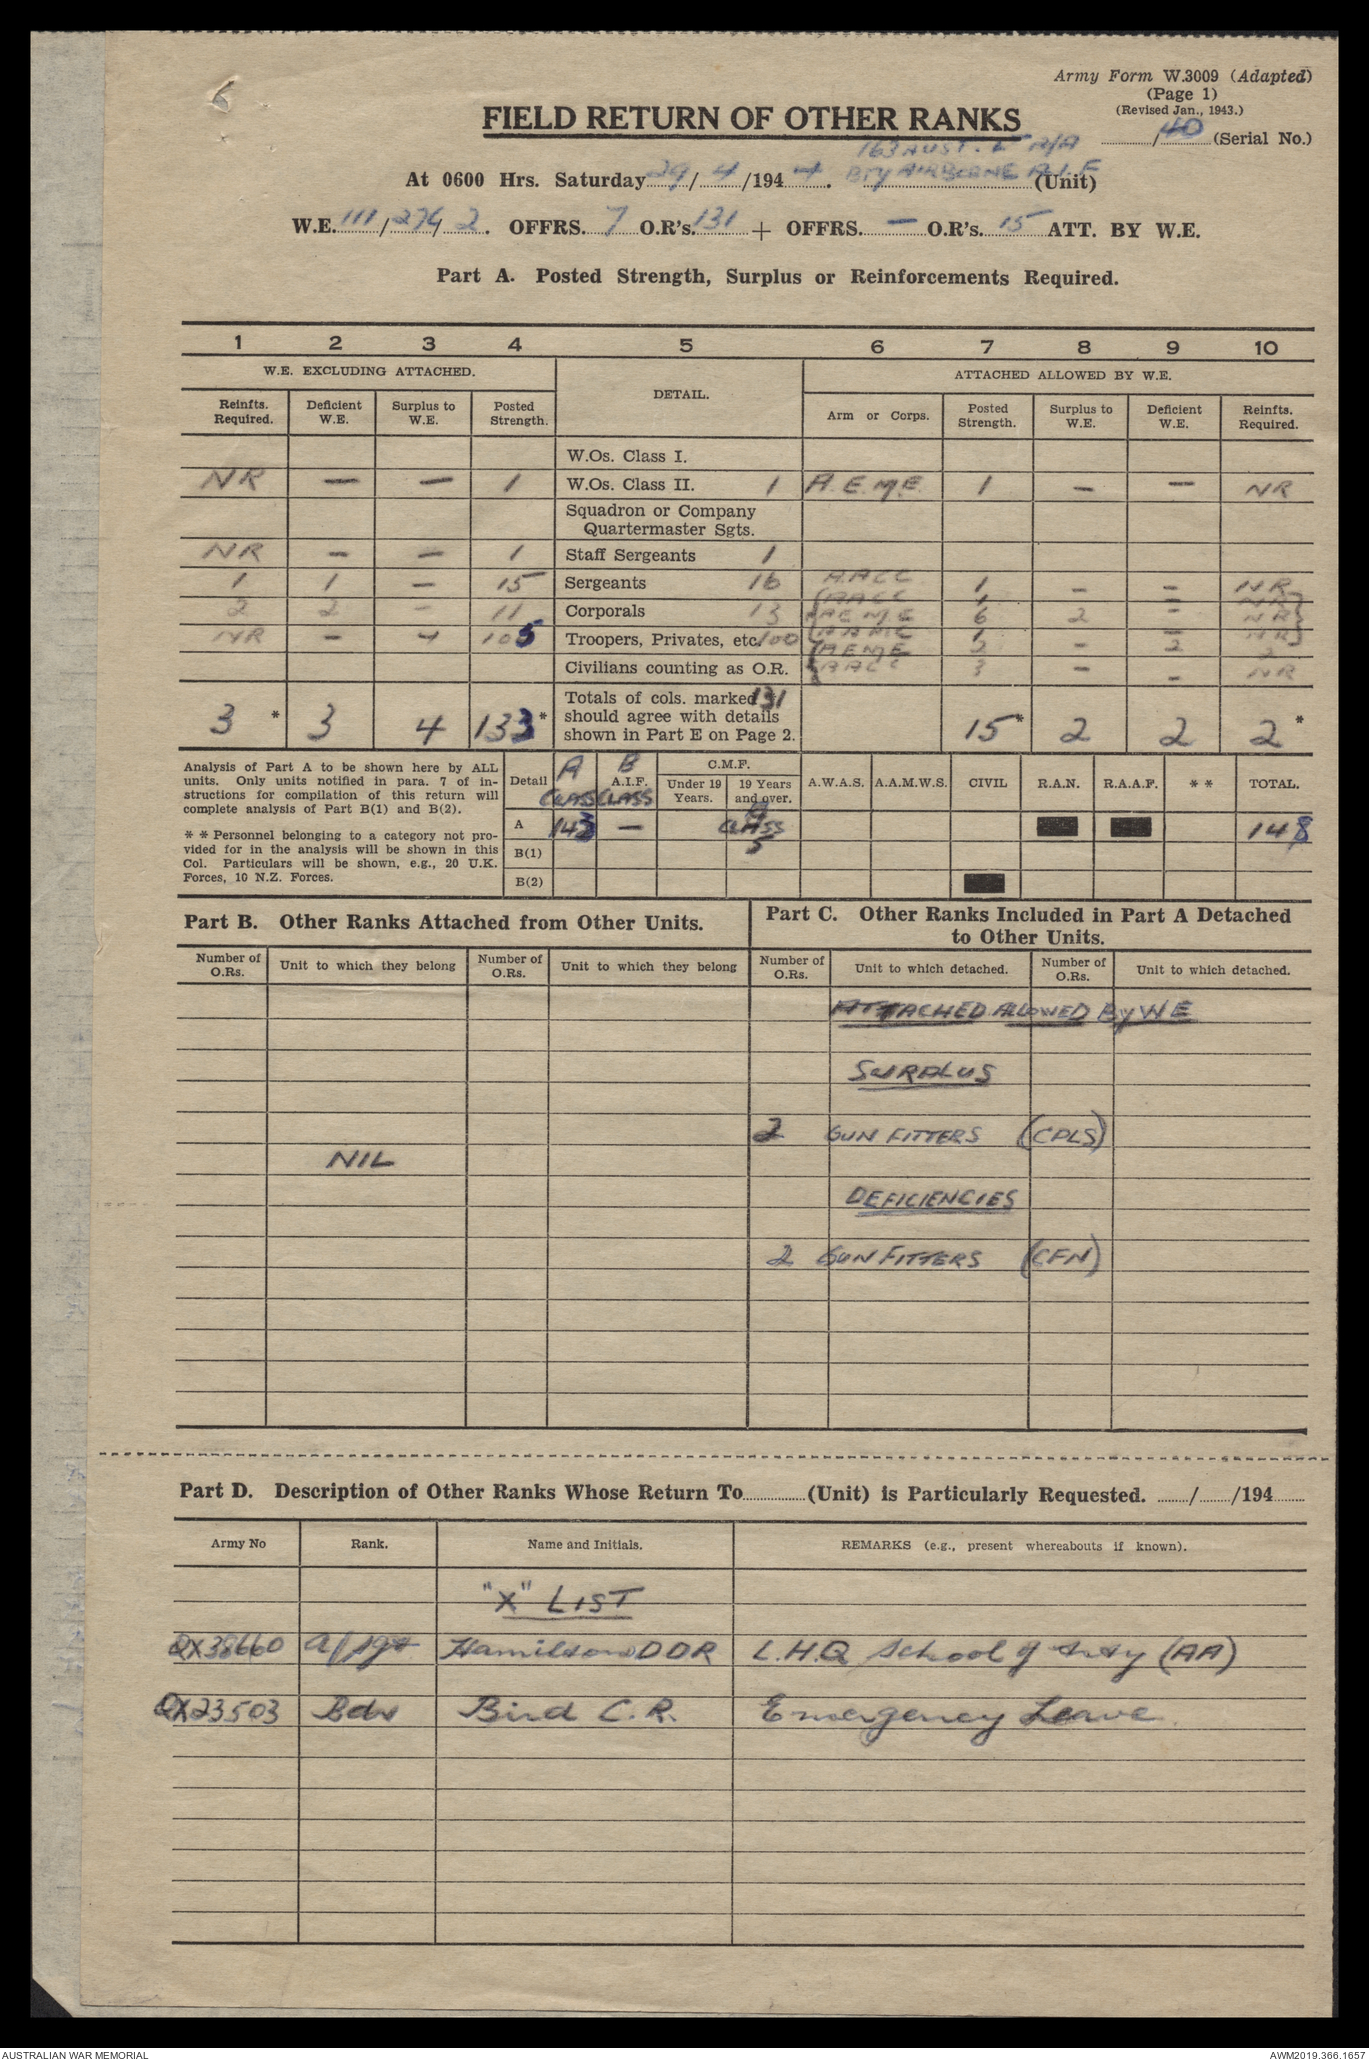 Army Form W.3009 (Adapted)
(Page 1)
(Revised Jan., 1943.)
FIELD RETURN OF OTHER RANKS
......../40 (Serial No.)
163 AUST. LT A/A
At 0600 Hrs. Saturday 29/4/1944. Bty AIRBORNE A.I.F (Unit)
W.E. 111/276/2. OFFRS. 7 O.R's. 131 + OFFRS. — O.R's. 15 ATT. BY W.E.
Part A. Posted Strength, Surplus or Reinforcements Required.
1 2 3 4 5 6 7 8 9 10
W.E. EXCLUDING ATTACHED. DETAIL. ATTACHED ALLOWED BY W.E.
Reinfts. Required. Deficient W.E. Surplus to W.E. Posted Strength. Arm or Corps. Posted Strength. Surplus to W.E. Deficient W.E. Reinfts. Required.
W.Os. Class I.
NR — — 1 W.Os. Class II. 1 A.E.M.E. 1 — — NR
Squadron or Company
Quartermaster Sgts.
NR — — 1 Staff Sergeants 1
1 1 — 15 Sergeants 16 A.A.C.C 1 — — NR
AACC 1 — NR
2 2 — 11 Corporals 13 AEME 6 2 — NR
NR — 4 105 Troopers, Privates, etc. 100 AAMC 1 — NR
AEME 2 — 2 2
Civilians counting as O.R. AACC 3 — — NR
3 * 3 4 133* Totals of cols. marked 131 should agree with details shown in Part E on Page 2. 15* 2 2 2 *
Analysis of Part A to be shown here by ALL
units. Only units notified in para. 7 of in-
structions for compilation of this return will
complete analysis of Part B(1) and B(2).
* * Personnel belonging to a category not pro-
vided for in the analysis will be shown in this
Col. Particulars will be shown, e.g., 20 U.K.
Forces, 10 N.Z. Forces.
Detail A CLASS B A.I.F. CLASS C.M.F. Under 19 Years. 19 Years and over. A.W.A.S. A.A.M.W.S. CIVIL R.A.N. R.A.A.F. * * TOTAL.
A 143 — CLASS 148
B(1) 5
B(2)
Part B. Other Ranks Attached from Other Units.
Number of O.Rs. Unit to which they belong Number of O.Rs. Unit to which they belong
NIL
Part C. Other Ranks Included in Part A Detached
to Other Units.
Number of O.Rs. Unit to which detached. Number of O.Rs. Unit to which detached.
ATTACHED ALLOWED By WE
SURPLUS
2 GUN FITTERS (CPLS)
DEFICIENCIES
2 GUN FITTERS (CFN)
Part D. Description of Other Ranks Whose Return To............(Unit) is Particularly Requested. ......./......./194.......
Army No Rank. Name and Initials. REMARKS (e.g., present whereabouts if known).
"X" LIST
QX38660 A/Sgt Hamilton DDR L.H.Q School of Arty (AA)
QX23503 Bdr Bird C.R. Emergency Leave
AUSTRALIAN WAR MEMORIAL
AWM2019.366.1657